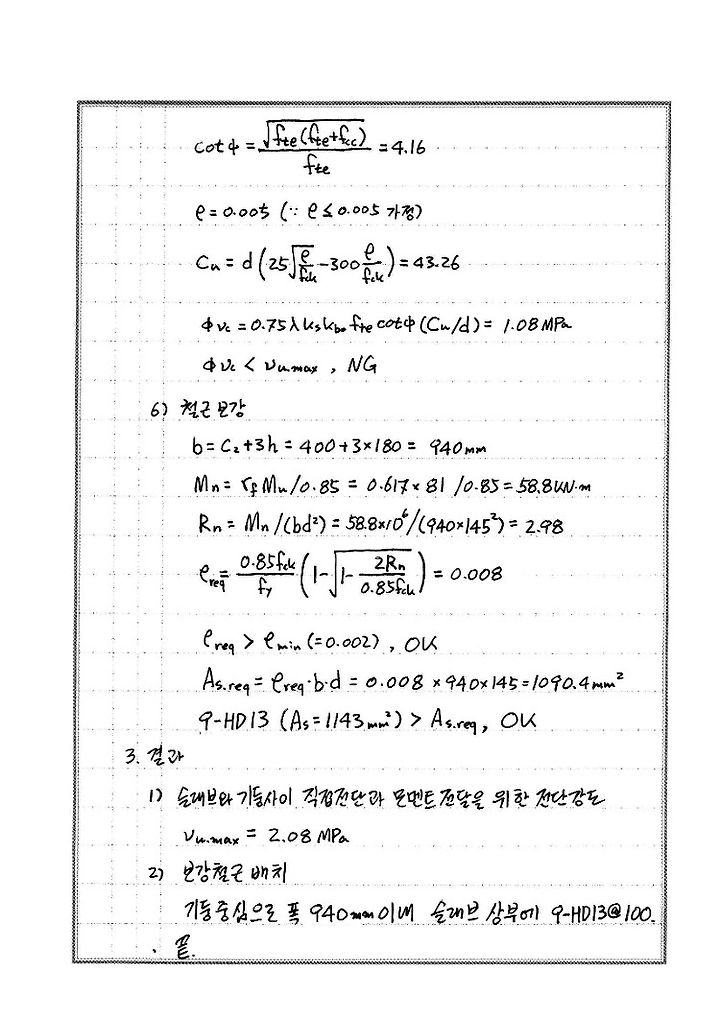 cotφ = √(fte(fte+fcc)) / fte = 4.16
ρ = 0.005 (∵ ρ ≤ 0.005 가정)
Cu = d (25√(ρ/fck) - 300 ρ/fck) = 43.26
φvc = 0.75λkskbo fte cotφ (Cu/d) = 1.08 MPa
φvc < vu.max , NG
6) 철근보강
b = C2+3h = 400+3×180 = 940mm
Mn = rf Mu/0.85 = 0.617×81 /0.85 = 58.8kN·m
Rn = Mn/(bd²) = 58.8×10⁶/(940×145²) = 2.98
ρreq = 0.85fck/fy (1-√(1- 2Rn/0.85fck)) = 0.008
ρreq > ρmin (=0.002) , OK
As.req = ρreq·b·d = 0.008 ×940×145 = 1090.4mm²
9-HD13 (As=1143mm²) > As.req, OK
3. 결과
1) 슬래브와 기둥사이 직접전단과 모멘트전달을 위한 전단강도
vu.max = 2.08 MPa
2) 보강철근 배치
기둥중심으로 폭 940mm이내 슬래브 상부에 9-HD13@100.
. 끝.